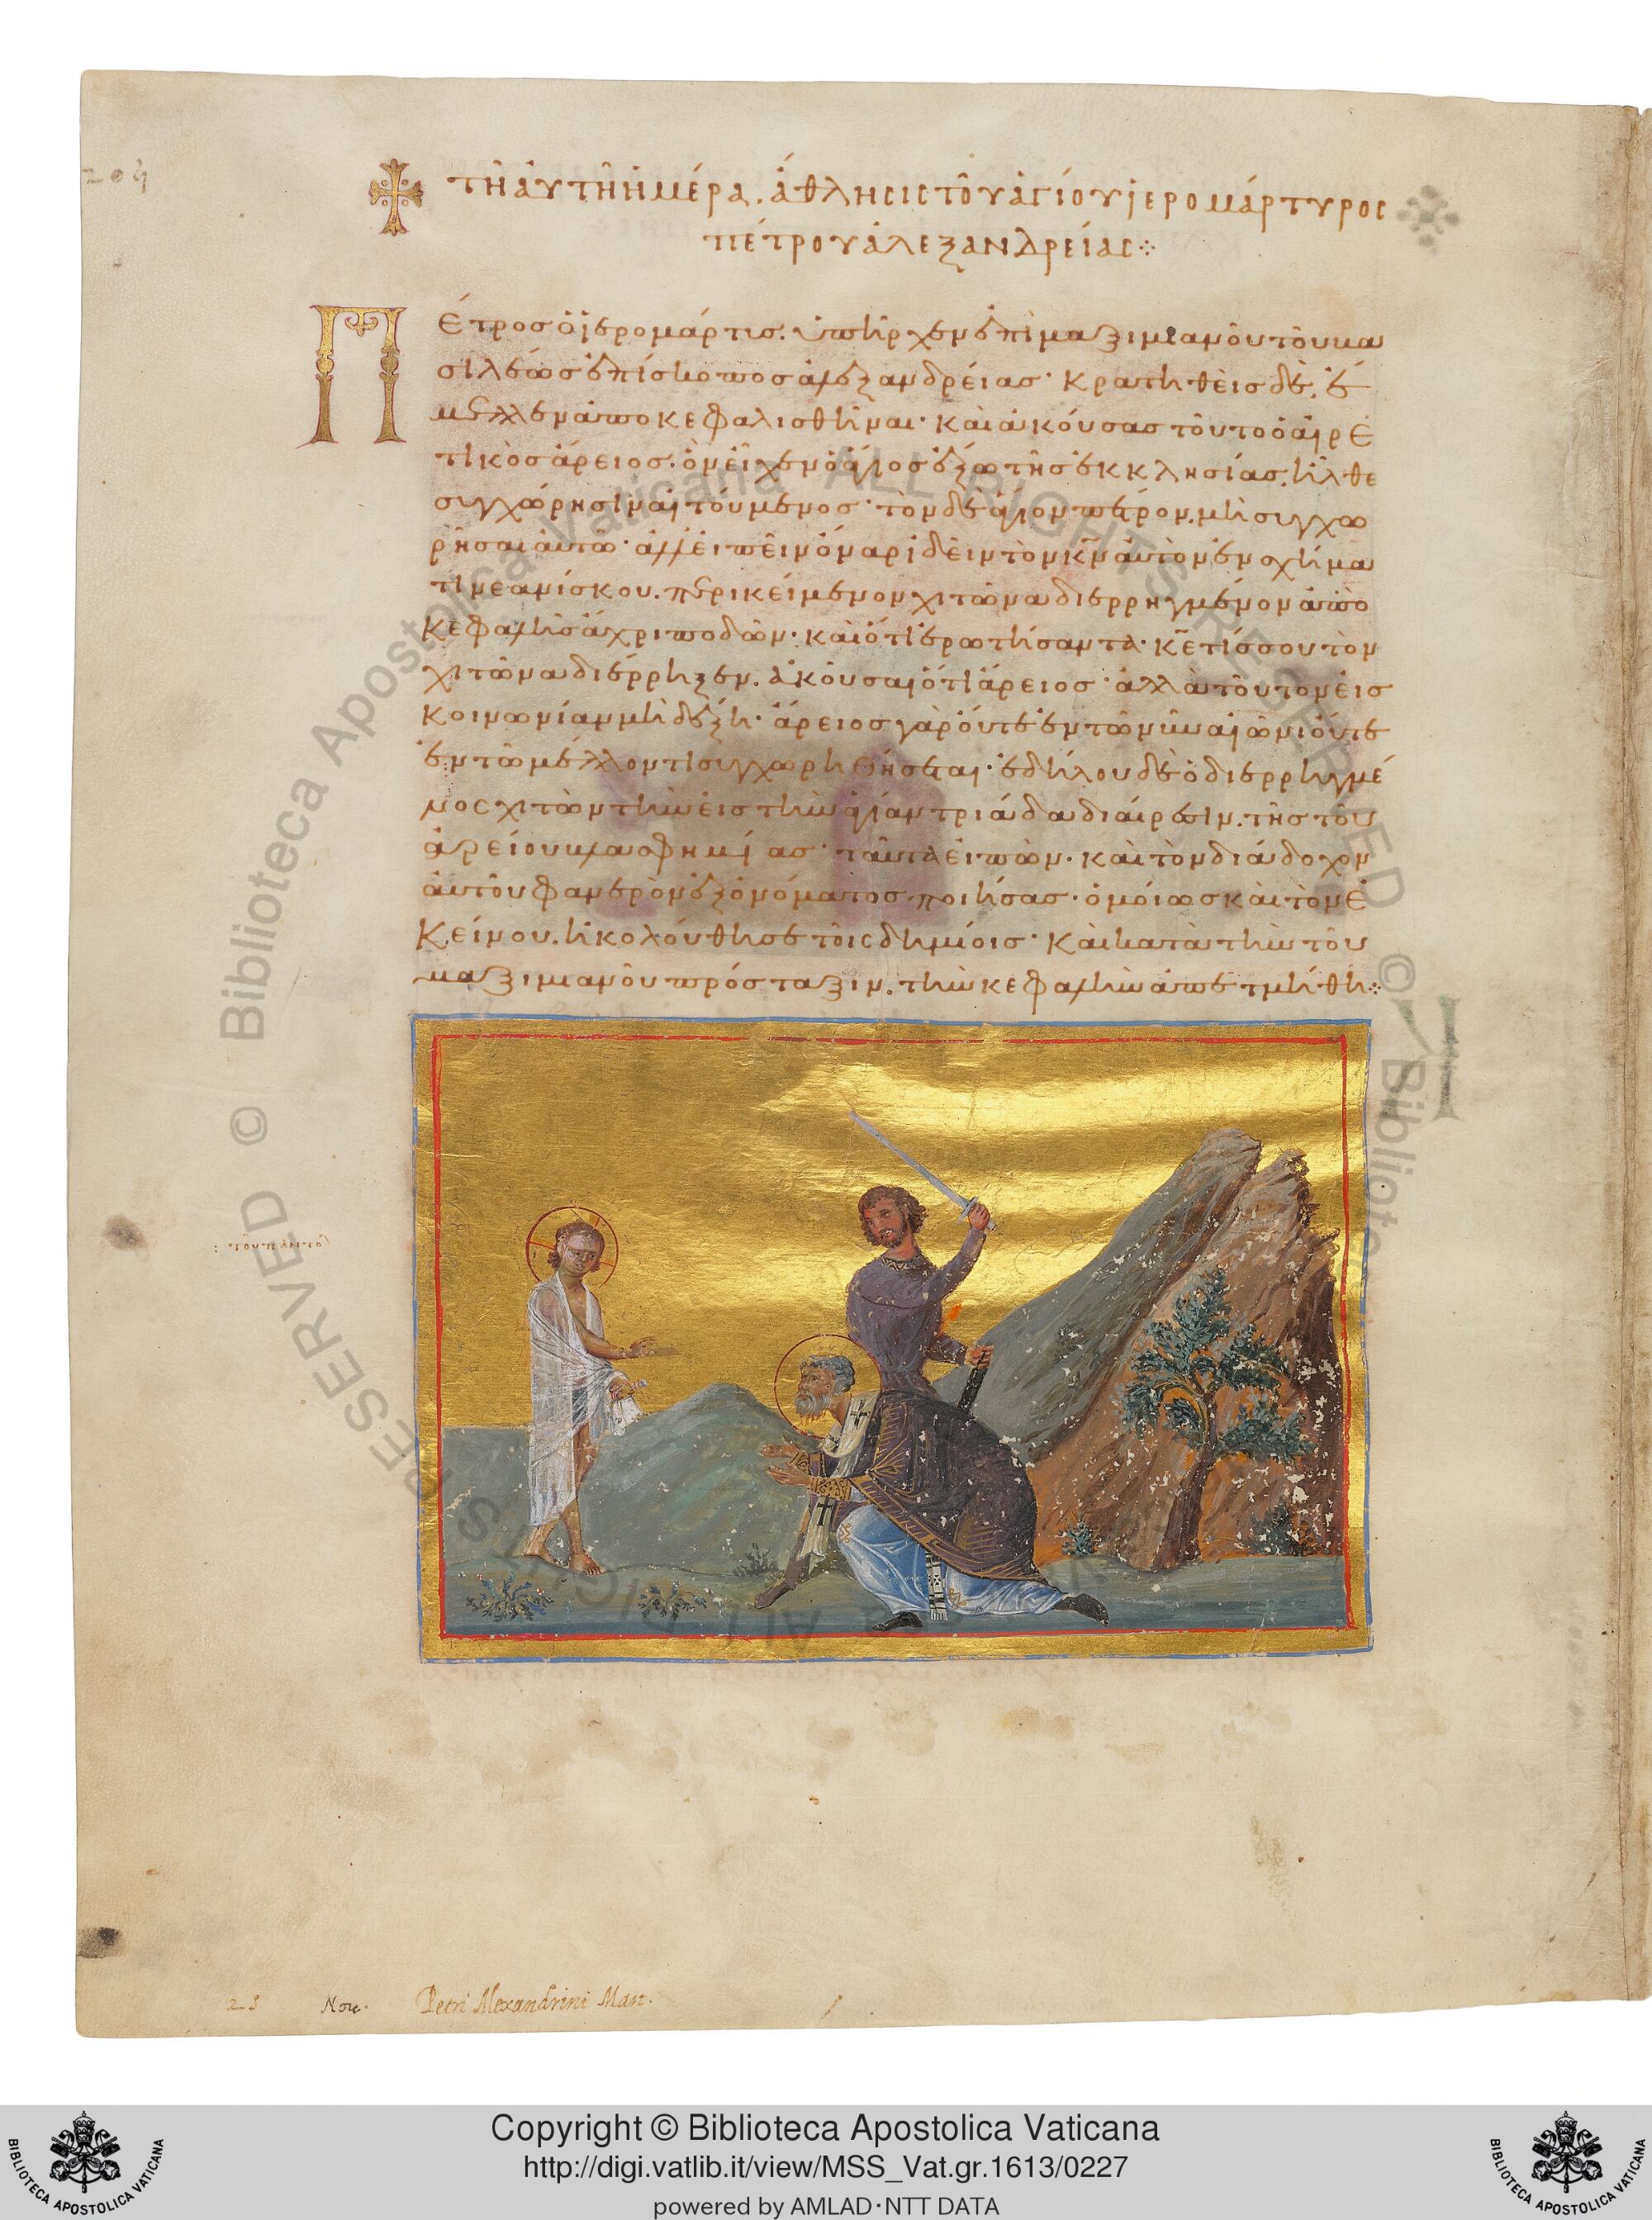 204
τῆ αὐτῆ ἡμέρα. ἄθλησις τοῦ ἁγίου ἱερομάρτυρος
πέτρου ἀλεξανδρείας
Πέτρος ὁ ἱερομάρτυς. ὑπῆρχεν ἐπὶ μαξιμιανοῦ τοῦ βα
σιλέως ἐπίσκοπος ἀλεξανδρείας· κρατηθεὶς δὲ, ἔ
μελλεν ἀποκεφαλισθῆναι· καὶ ἀκούσας τοῦτο ὁ αἱρε
τικὸς ἄρειος. ὃν εἶχεν ὁ ἅγιος ἔξω τῆς ἐκκλησίας. ἦλθε
συγχώρησιν αἰτούμενος· τὸν δὲ ἅγιον πέτρον. μὴ συγχω
ρῆσαι αὐτῶ· ἀλλ' εἰπεῖν ὄναρ ἰδεῖν τὸν κν αὐτὸν ἐν σχήμα
τι νεανίσκου. περικείμενον χιτῶνα διερρηγμένον ἀπὸ
κεφαλῆς ἄχρι ποδῶν· καὶ ὅτι ἐρωτήσαντα· κε τίς σου τὸν
χιτῶνα διέρρηξεν. ἀκοῦσαι ὅτι ἄρειος· ἀλλὰ τοῦτον εἰς
κοινωνίαν μὴ δέξη· ἄρειος γὰρ οὔτε ἐν τῶ νῦν αἰῶνι οὔτε
ἐν τῶ μέλλοντι συγχωρηθήσεται· ἐδήλου δὲ ὁ διερρηγμέ
νος χιτὼν τὴν εἰς τὴν ἁγίαν τριάδα διαίρεσιν. τῆς τοῦ
ἀρείου βλασφημίας· ταῦτα εἰπὼν· καὶ τὸν διάδοχον
αὐτοῦ φανερὸν ἐξ ὀνόματος ποιήσας· ὁμοίως καὶ τὸν ἐ
κείνου. ἠκολούθησε τοῖς δημίοις· καὶ κατὰ τὴν τοῦ
μαξιμιανοῦ πρόσταξιν. τὴν κεφαλὴν ἀπετμήθη
25 Nov. Petri Alexandrini Mart.
© Biblioteca Apostolica Vaticana ALL RIGHTS RESERVED
Copyright © Biblioteca Apostolica Vaticana
http://digi.vatlib.it/view/MSS_Vat.gr.1613/0227
powered by AMLAD·NTT DATA
BIBLIOTECA APOSTOLICA VATICANA
BIBLIOTECA APOSTOLICA VATICANA